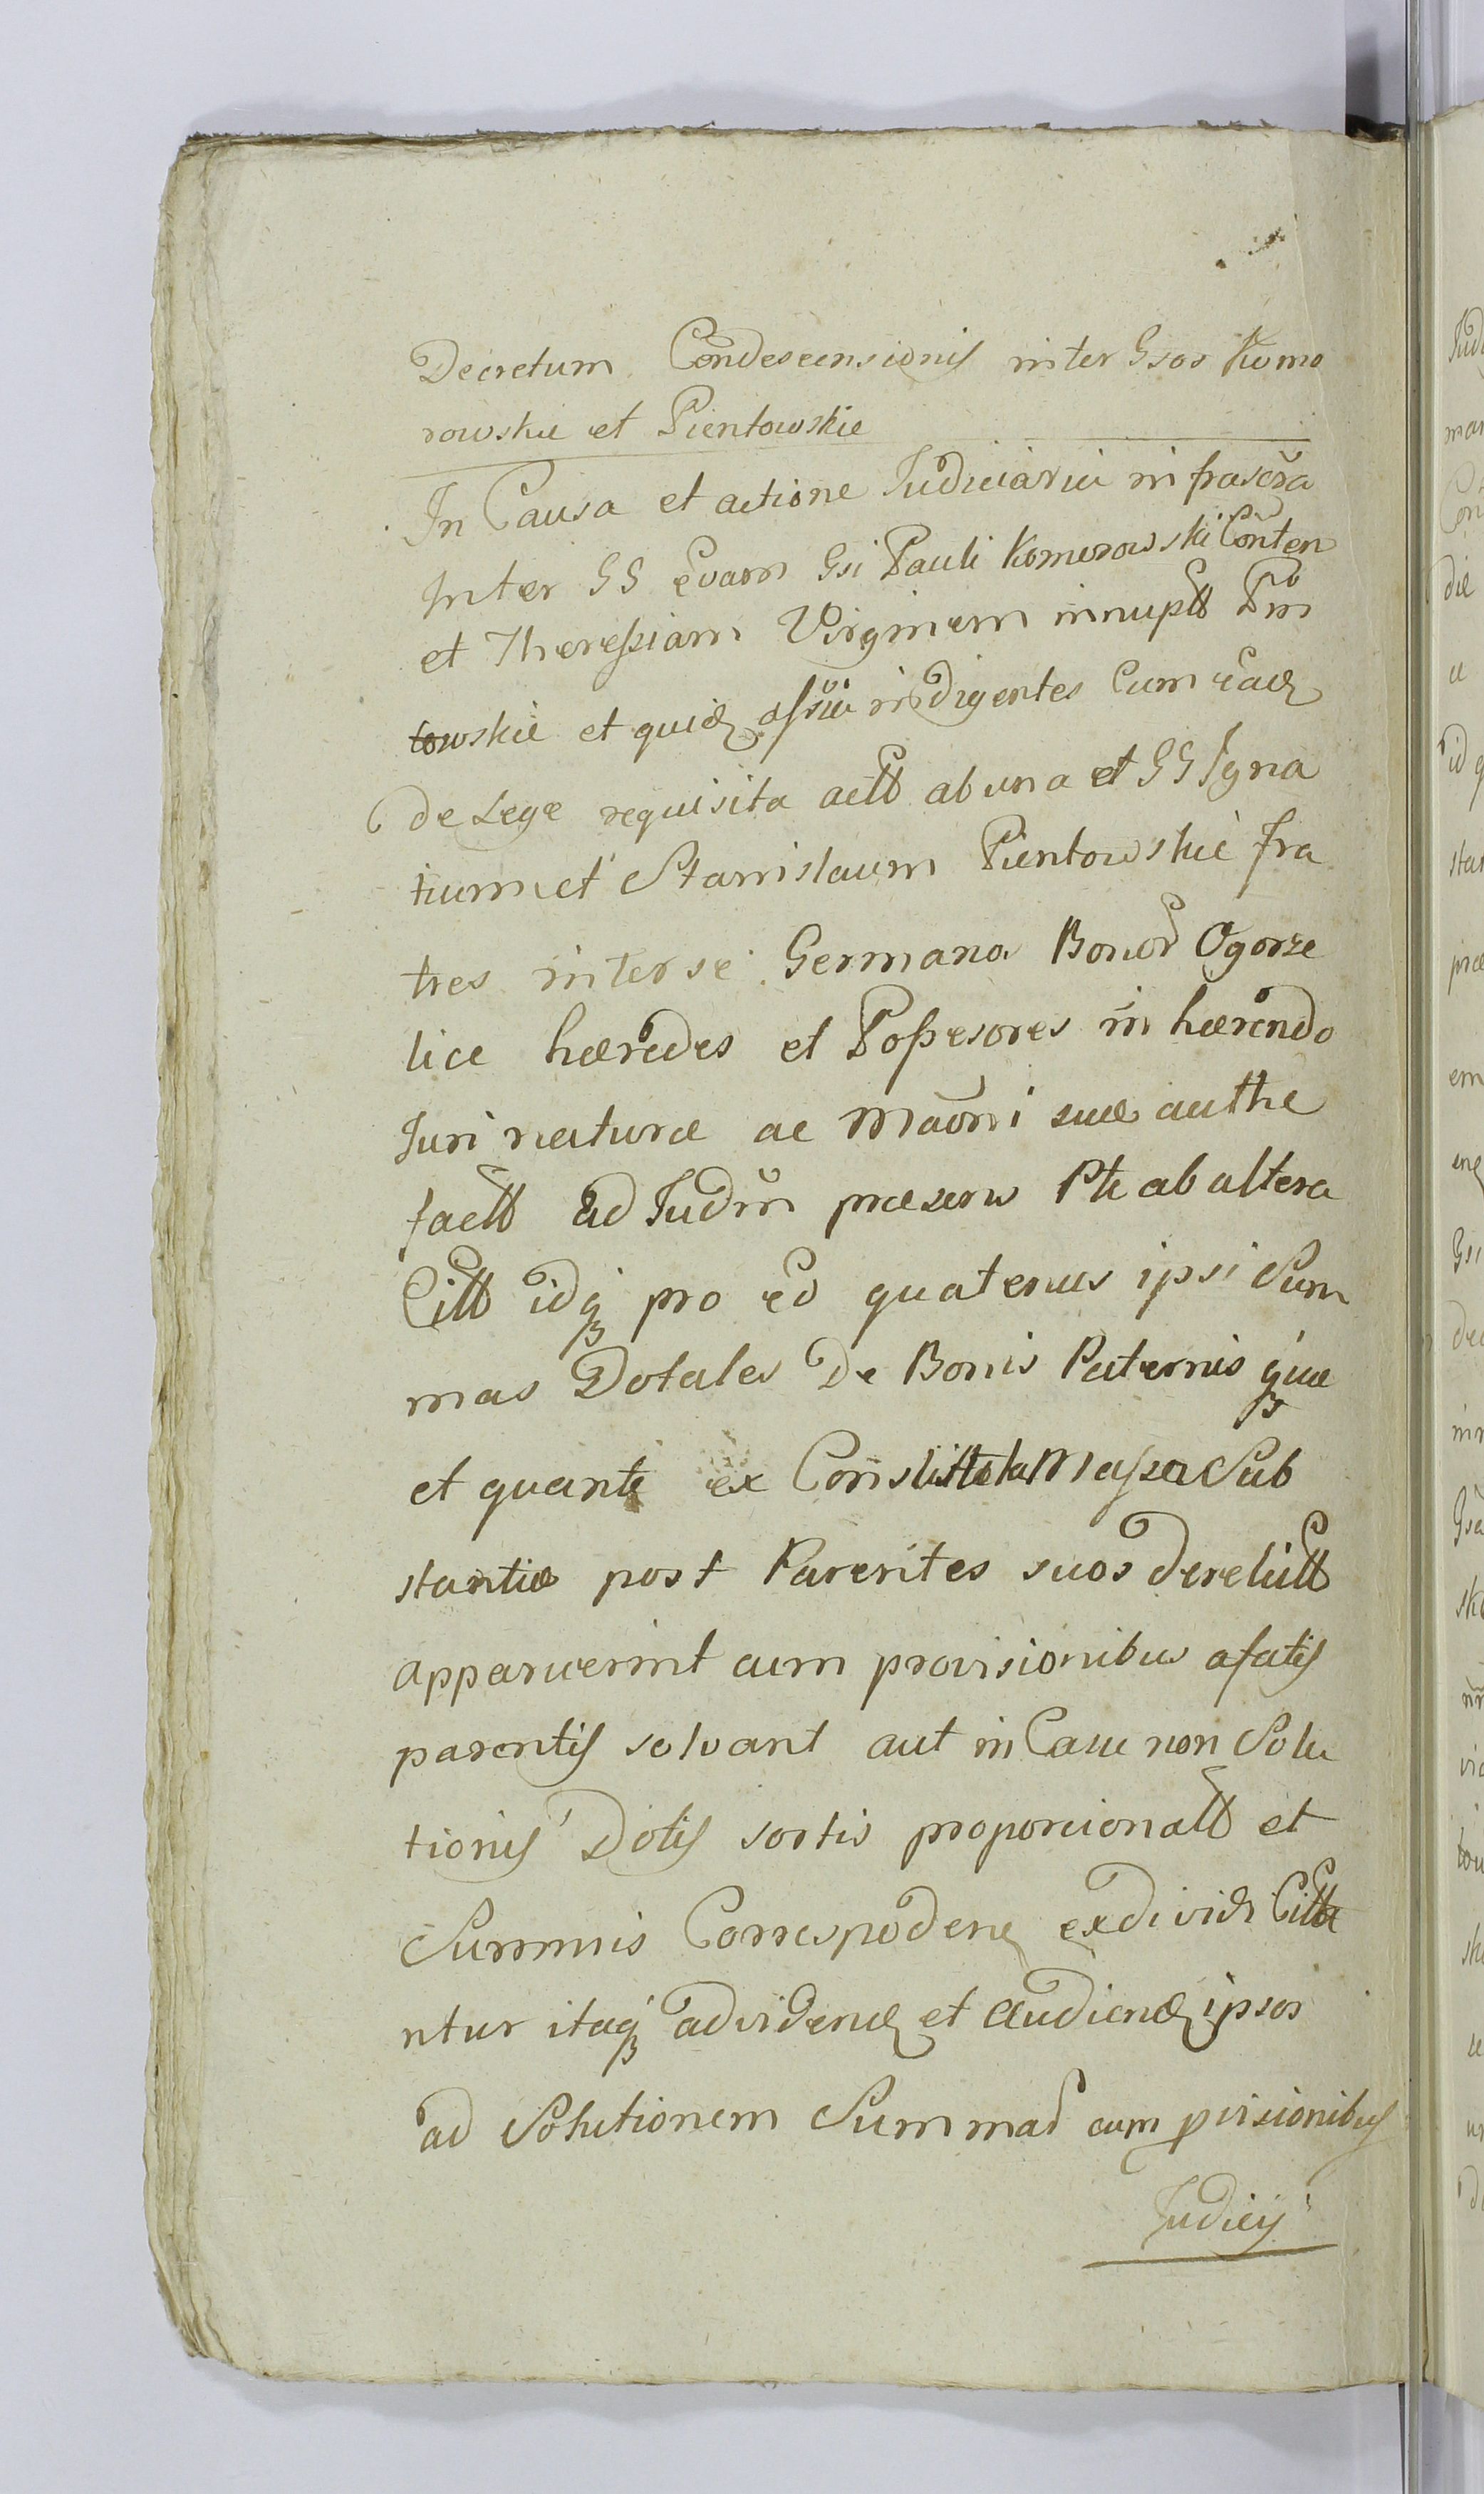 Decretum Condescensionis inter Gsos Komo
rowskie et Pientowskie
In Causa et actione Iudiciaria infrascra
Inter GG Evam Gsi Pauli Komorowski Conten
et Theressiam Virginem innupt Pin
towskie et quid assii indigentes Cum ead
de Lege requisita act ab una et GG Igna
tium et Stanislaum Pientowskie fra
tres inter se Germanos Bonor Ogorze
lice hæredes et Possesores in hærendo
Iuri naturæ ac Maoni suæ authe
fact ad Iudm præsens Pte ab altera
Citt idq pro eo quatenus ipsi Sum
mas Dotales De Bonis Paternis quæ
et quante ex Massa Sub
stantiæ post Parentes suos derelict
apparuerint cum provisionibus afatis
parentis solvant aut in Casu non Solu
tionis Dotis sortis proporcionatt et
Summis Correspodene exdivid Citta
ntur itaq ad vidend et audiend ipsos
ad Solutionem Summar cum pvisionibus
Iudicy